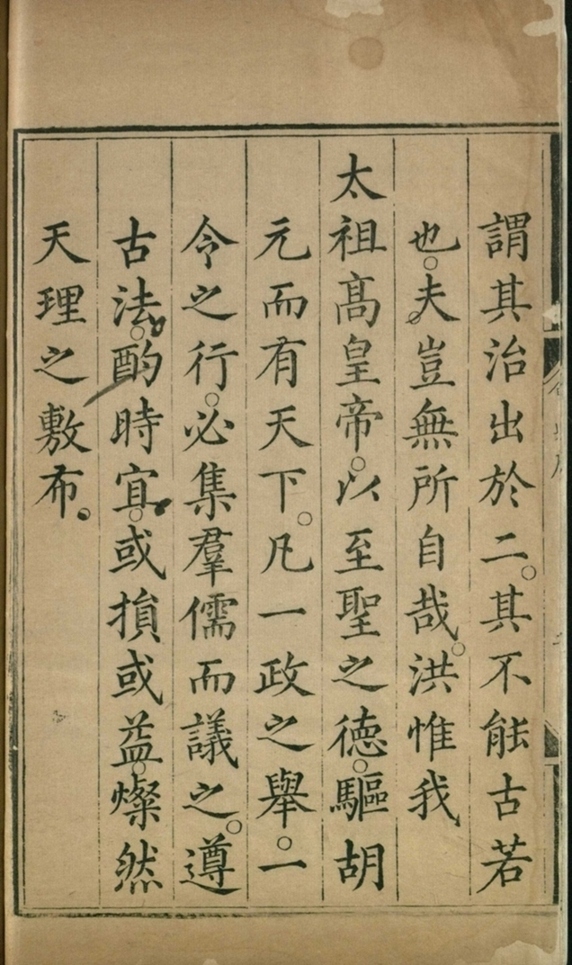 謂其治出於二。其不能古若
也。夫豈無所自哉。洪惟我
太祖高皇帝。以至聖之德。驅胡
元而有天下。凡一政之舉。一
令之行。必集羣儒而議之。遵
古法。酌時宜。或損或益。燦然
天理之敷布。